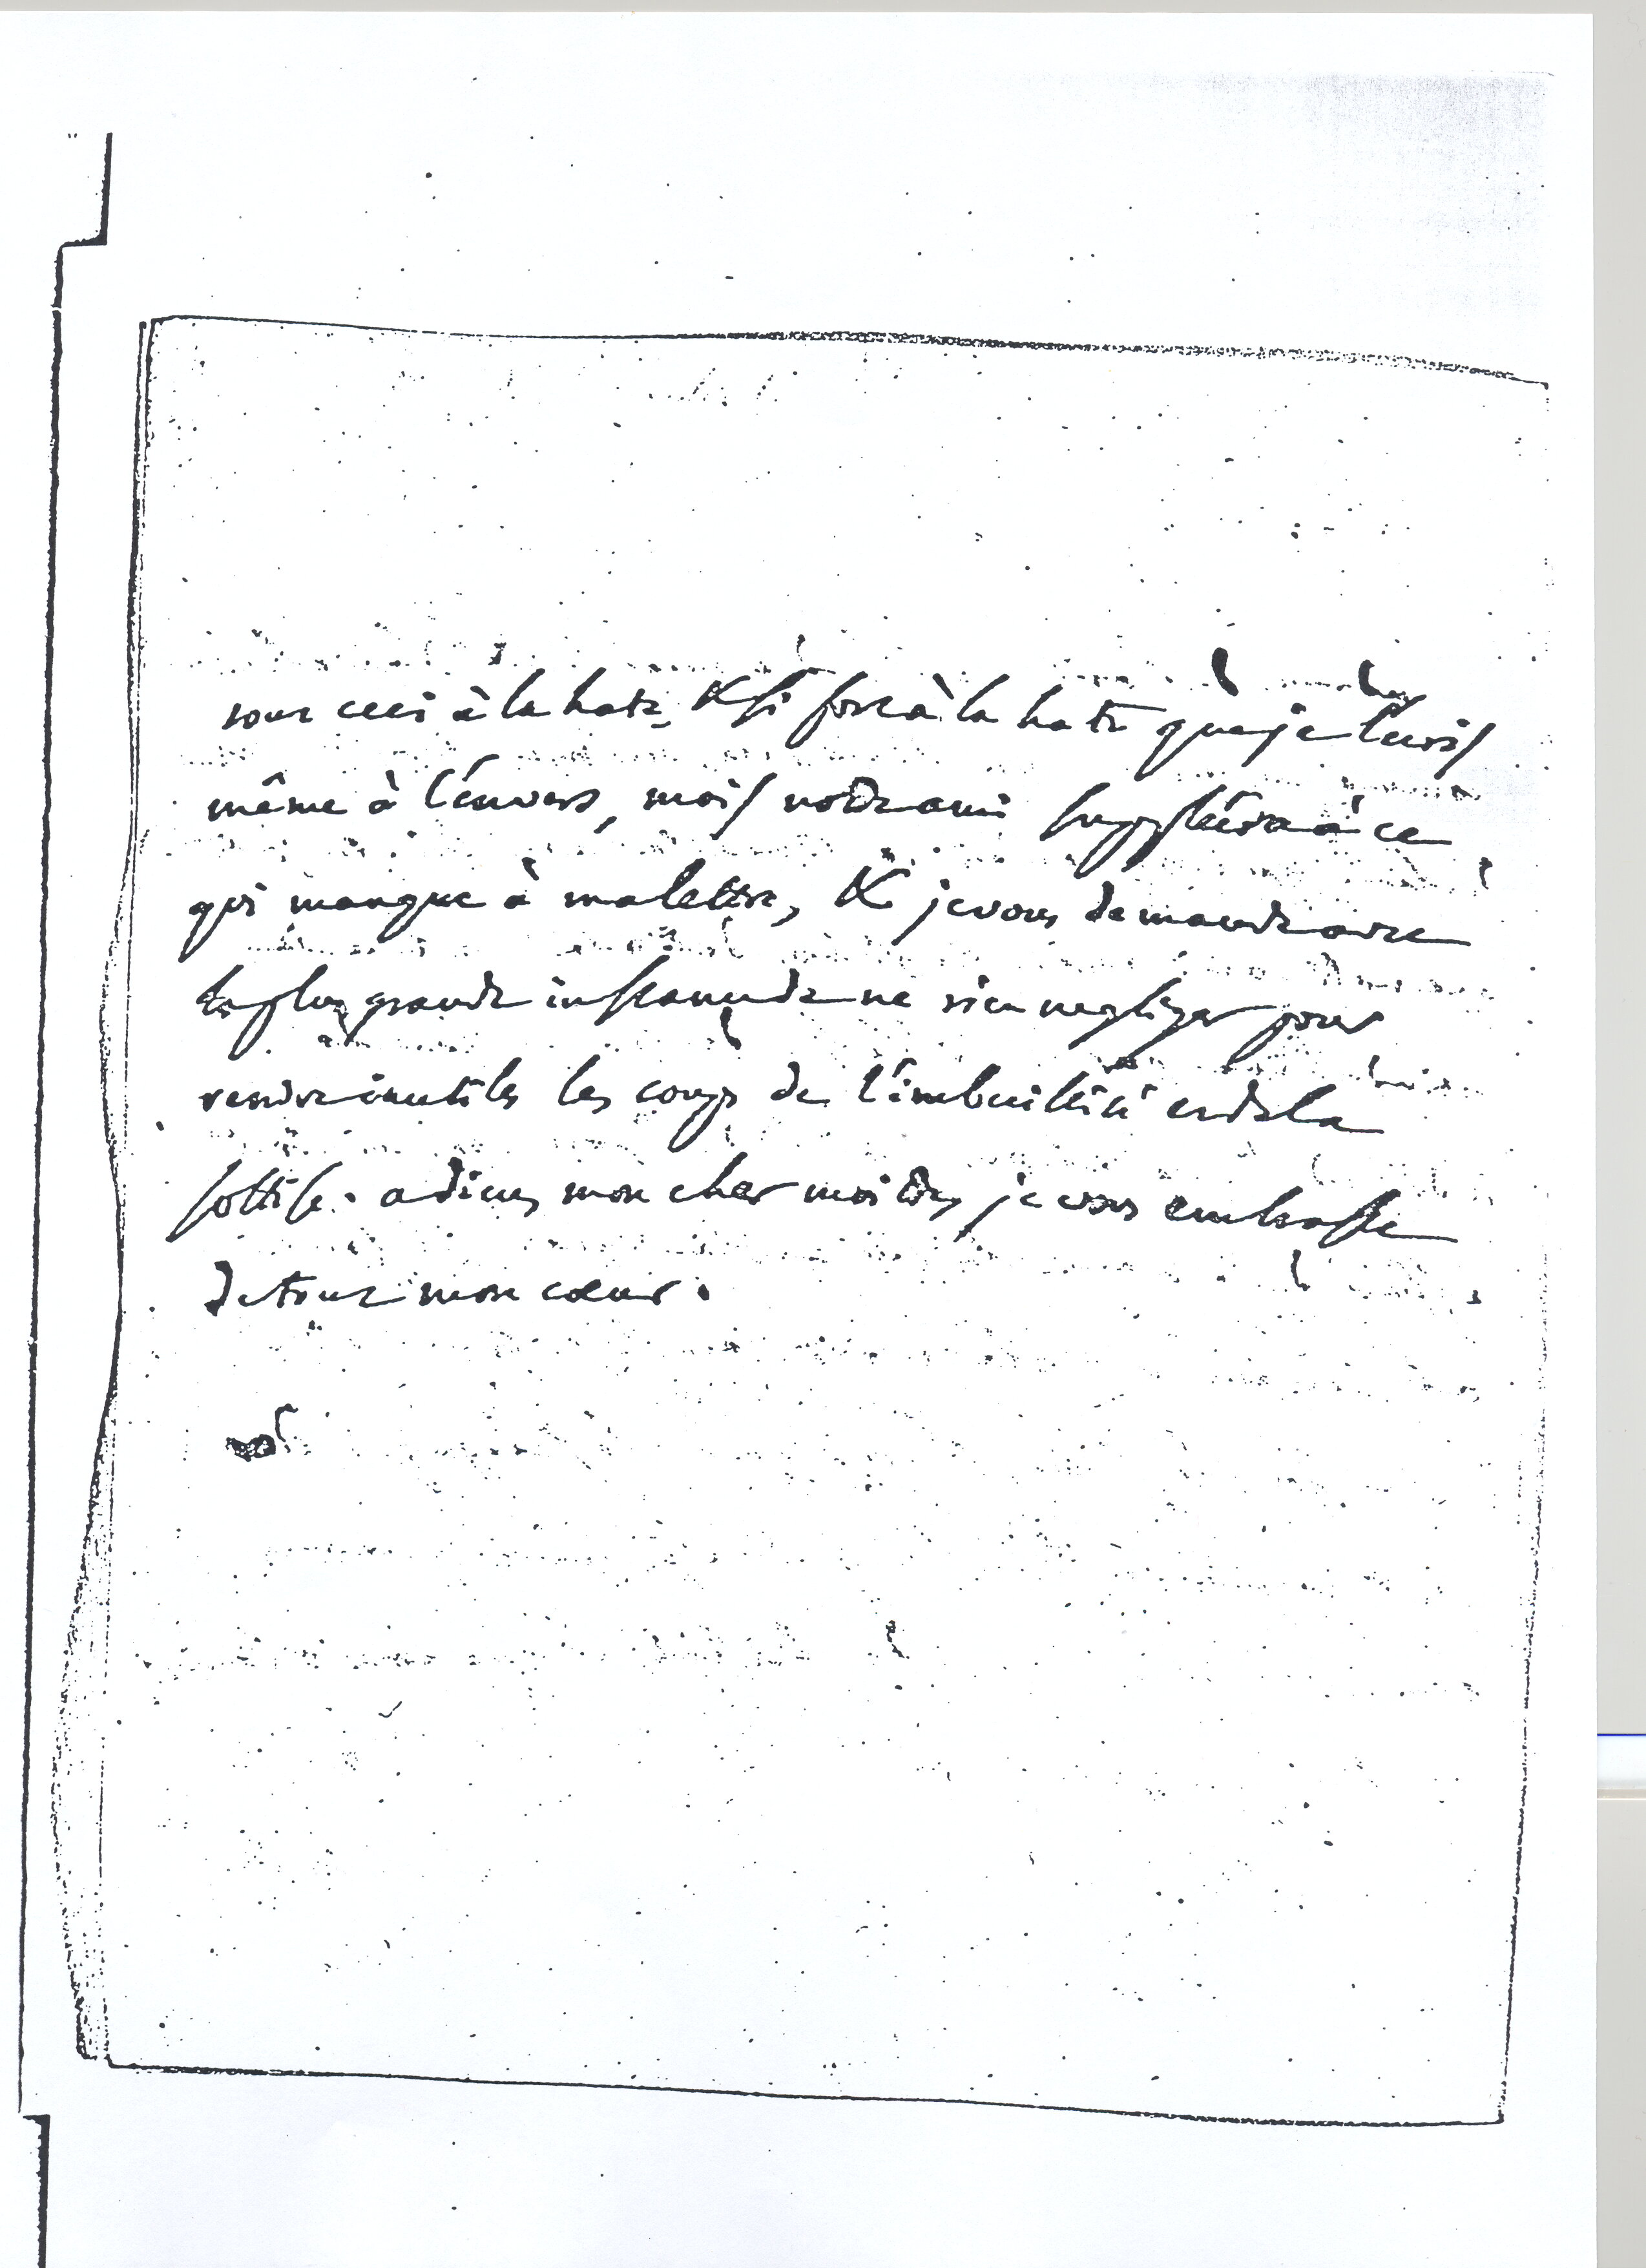 tout ceci à la hate, & si fort à la hate que je l'ecris
même à l'envers, mais notre ami suppléera à ce
qui manque à ma lettre, & je vous demande avec
la plus grande instance de ne rien negliger pour
rendre inutiles les coups de l'imbecillité et de la
sottise. adieu mon cher maitre, je vous embrasse
de tout mon cœur.